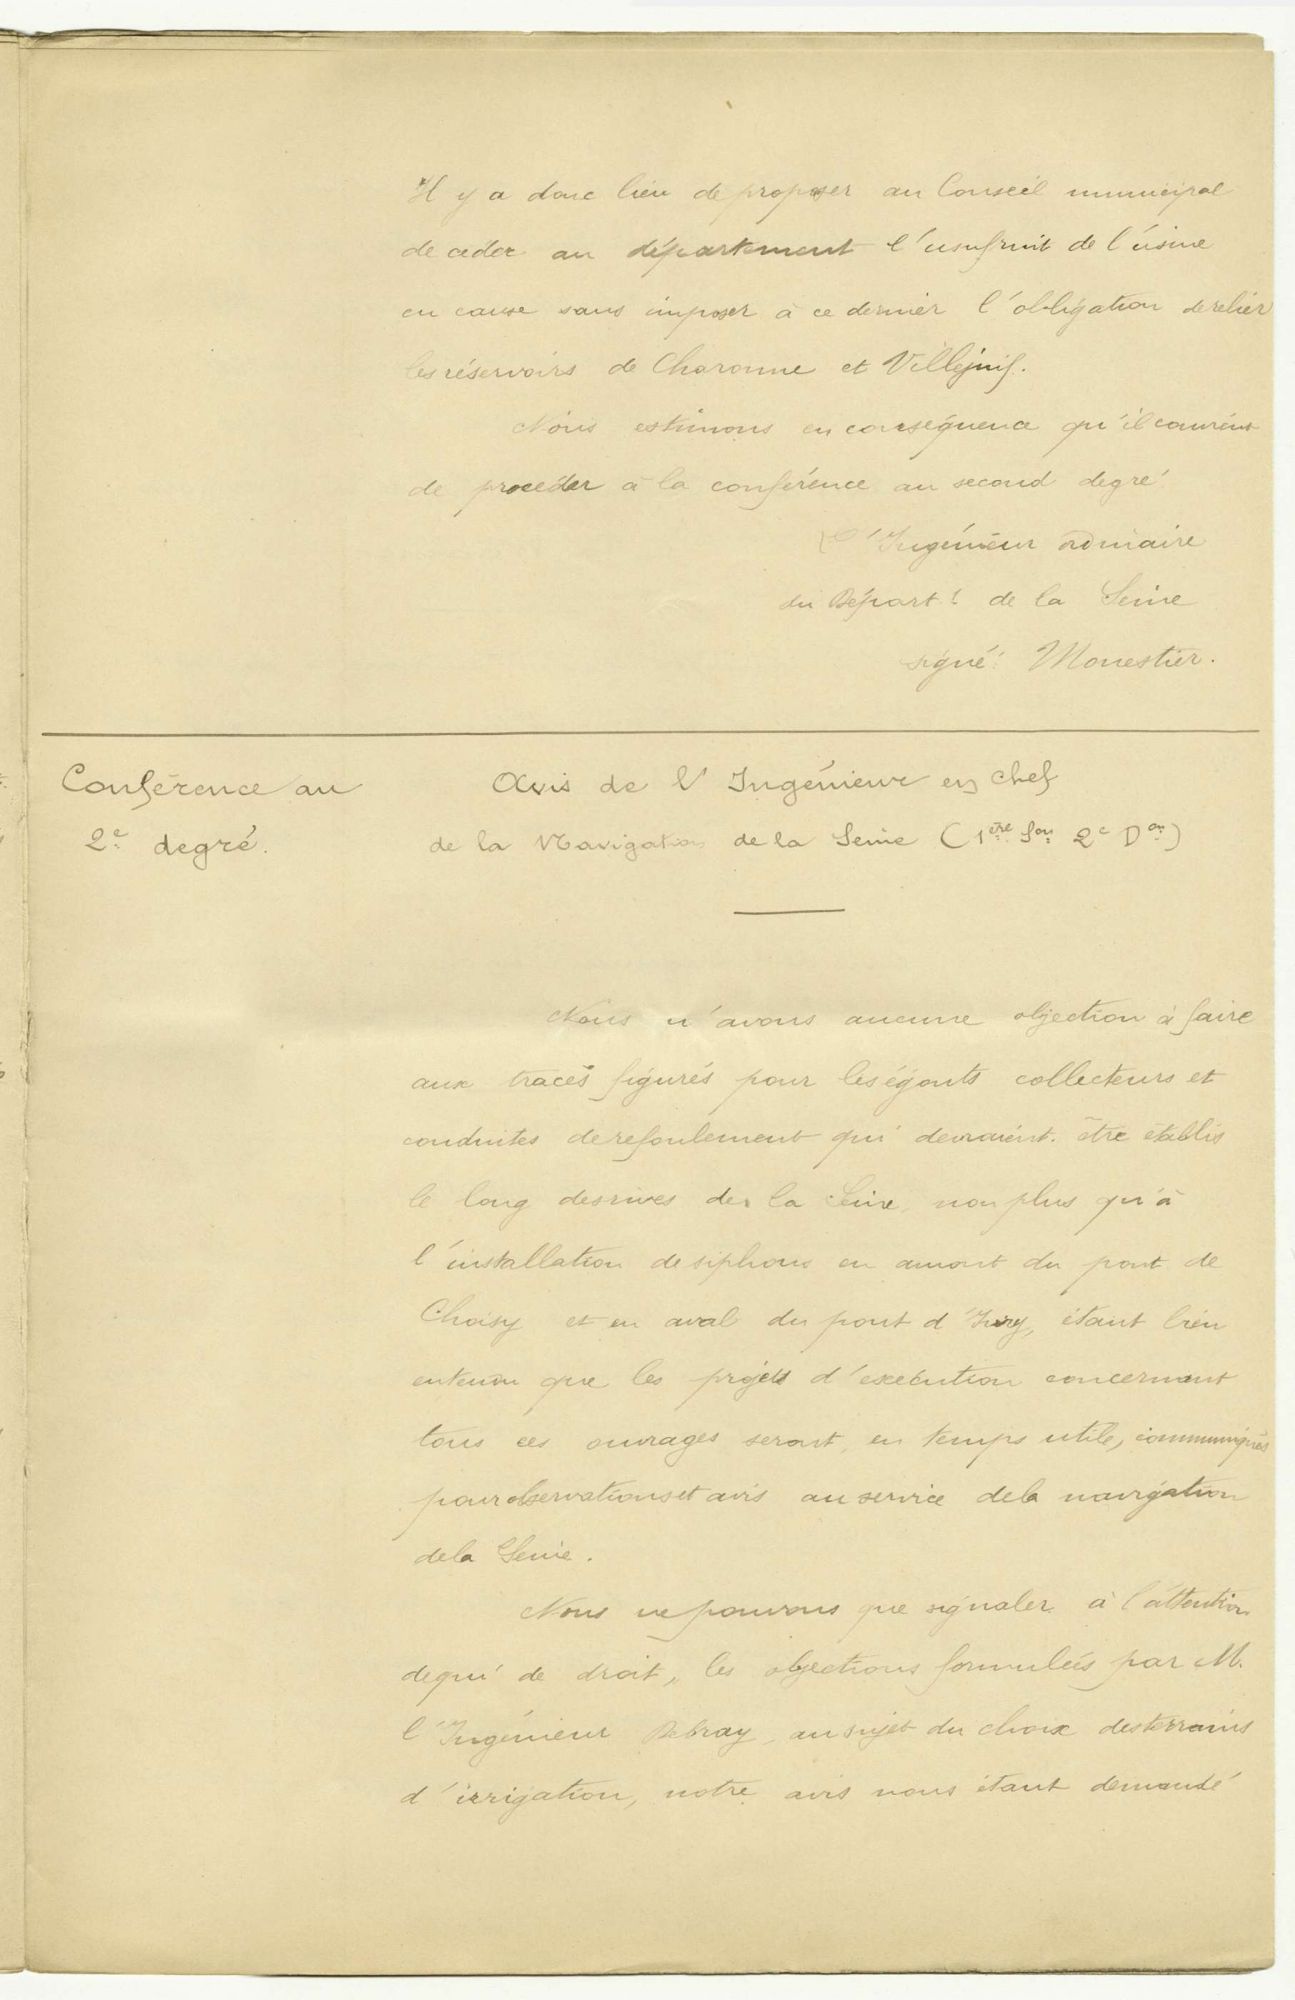 Il y a donc lieu de proposer au Conseil municipal
de céder au département l'usufruit de l'usine
en cause sans imposer à ce dernier l'obligation de relier
les réservoirs de Charonne et Villejuif.
Nous estimons en conséquence qu'il convient
de procéder à la conférence au second degré.
L'Ingénieur ordinaire
du Départ.t de la Seine
signé: Monestier.
Conférence au
2e degré.
Avis de l'Ingénieur en chef
de la Navigation de la Seine (1ère Son 2e Don)
Nous n'avons aucune objection à faire
aux tracés figurés pour les égouts collecteurs et
conduites de refoulement qui devraient être établis
le long des rives de la Seine, non plus qu'à
l'installation de siphons en amont du pont de
Choisy et en aval du pont d'Ivry, étant bien
entendu que les projets d'exécution concernant
tous ces ouvrages seront, en temps utile, communiqués
pour observations et avis au service de la navigation
de la Seine.
Nous ne pouvons que signaler à l'attention
de qui de droit, les objections formulées par M.
l'Ingénieur Debray, au sujet du choix des terrains
d'irrigation, notre avis nous étant demandé